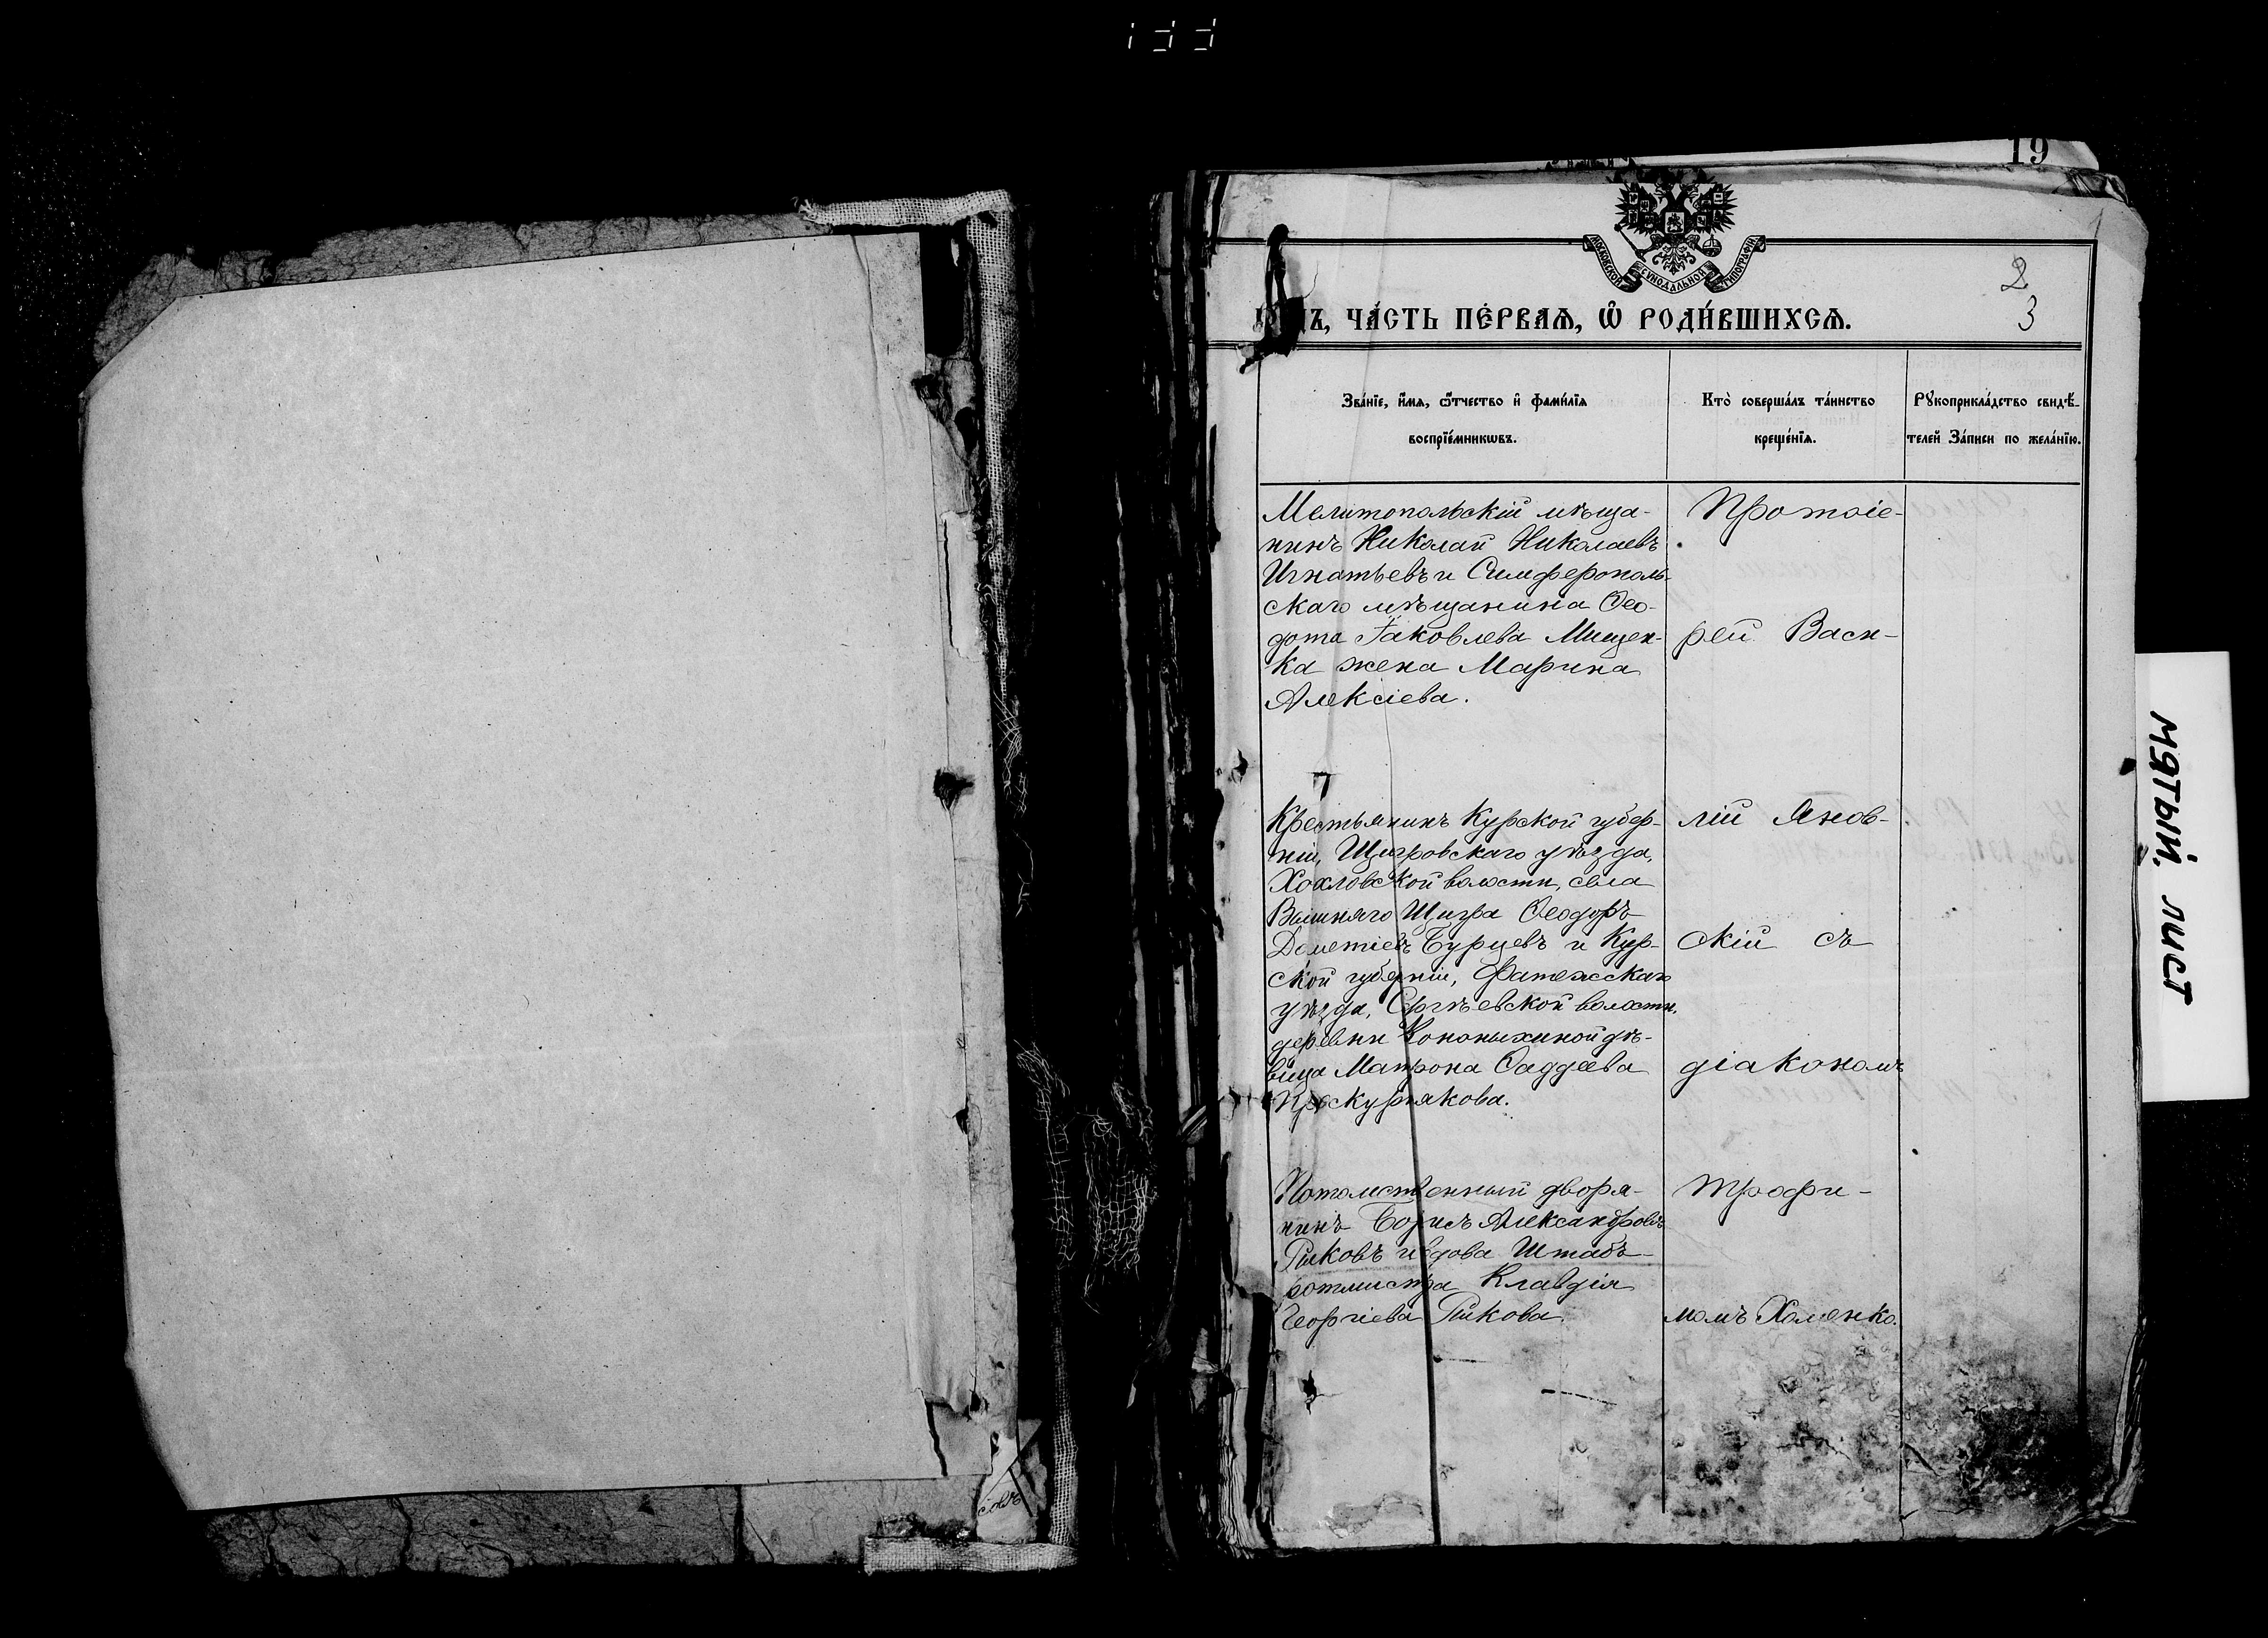 19
МОСКОВСКОЙ СѴНОДАЛЬНОЙ ТИПОГРАФІИ
2
3
ЧА́СТЬ ПЕ́РВАЯ, Ѡ҆ РОДИ́ВШИХСЯ.
Зва́нїе, и҆́мя, ѻ҆́тчество и҆ фами́лїя
воспрїе́мникѡвъ.
Кто̀ соверша́лъ та́инство
креще́нїя.
Рꙋкоприкла́дство свидѣ́-
телей За́писи по жела́нїю.
Мелитопольскій мѣща-
нинъ Николай Николаевъ
Игнатьевъ и Симферополь-
скаго мѣщанина Ѳео-
дота Іаковлева Мищен-
ка жена Марина
Алексіева.
Крестьянинъ Курской губер-
ніи, Щигровскаго уѣзда,
Хохловской волости, села
Вышняго Щигра Ѳеодоръ
Дометіевъ Бурцевъ и Кур-
ской губерніи, Фатежскаго
уѣзда, Сергѣевской волости,
деревни Кононыхиной дѣ-
вица Матрона Ѳаддеева
Проскурякова.
Потомственный дворя-
нинъ Борисъ Александровъ
Рыковъ и вдова Штабъ-
ротмистра Клавдія
Георгіева Рыкова.
Протоіе-
рей Васи-
лій Янов-
скій съ
діакономъ
Трофи-
момъ Хоменко.
МЯТЫЙ ЛИСТ